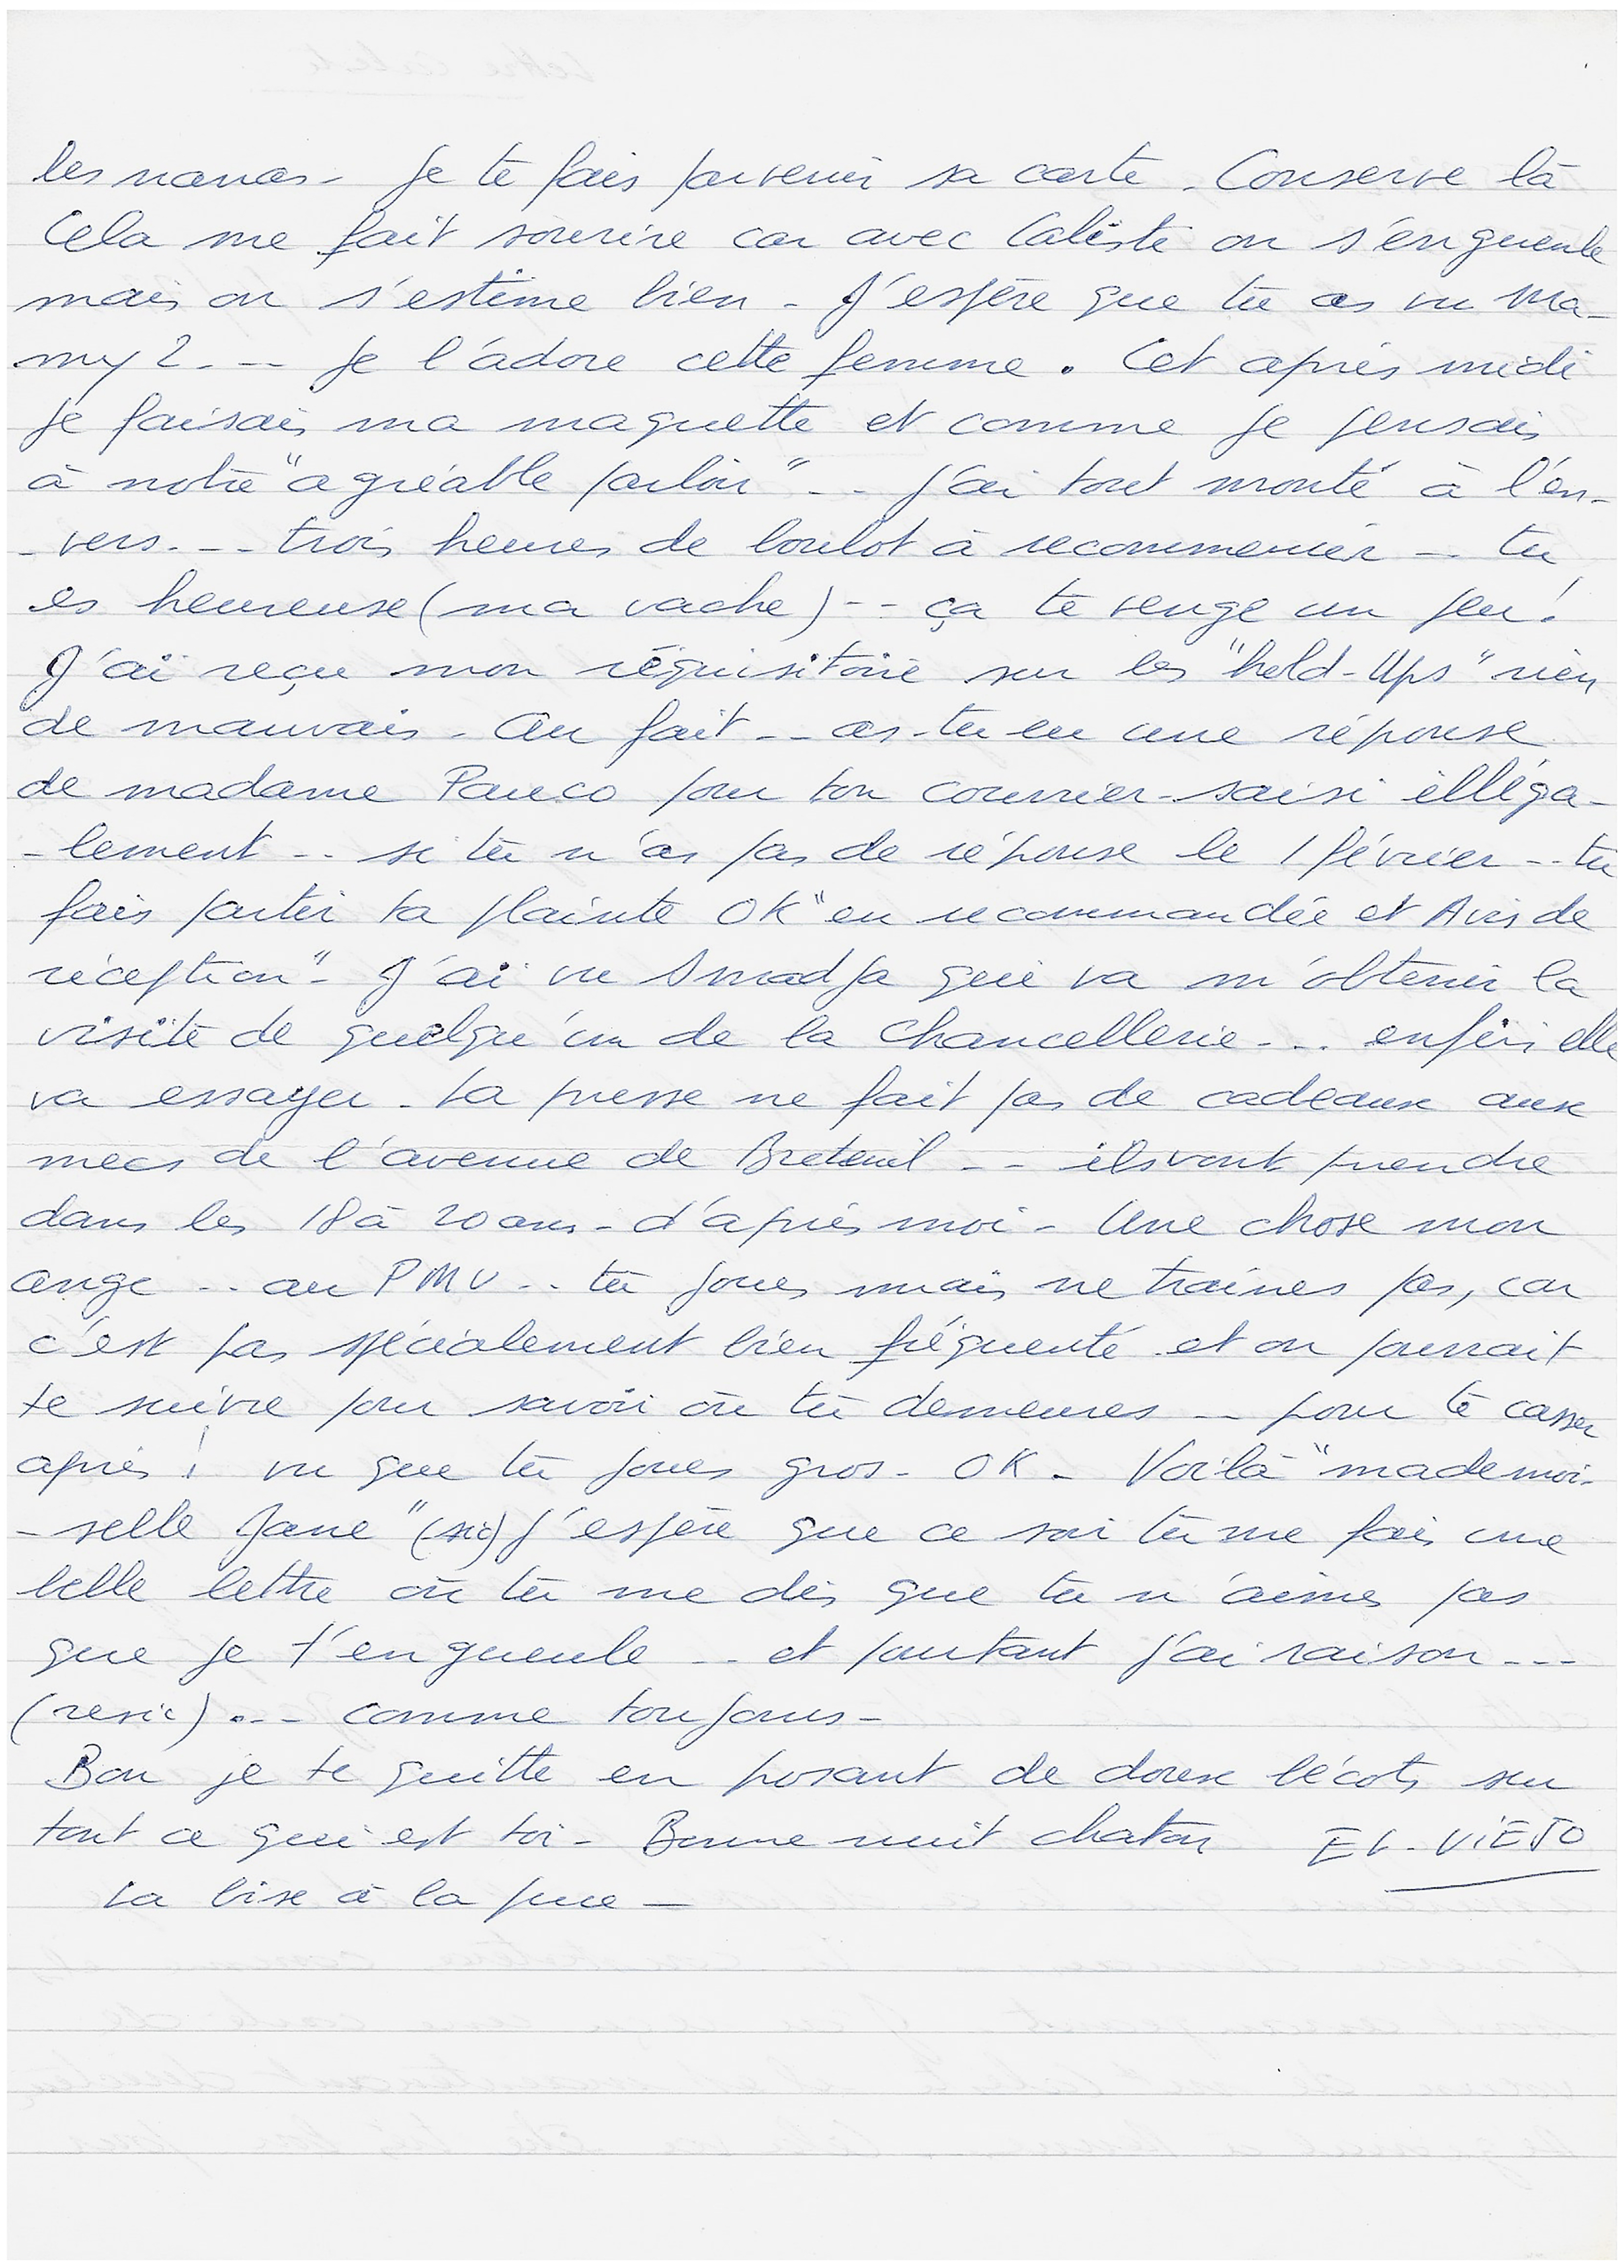 les nanas - Je te fais parvenir sa carte. Conserve là
Cela me fait sourire car avec Caliste on s'engueule
mais on s'estime bien - J'espère que tu as vu Ma-
my 2. -- Je l'adore cette femme. Cet après midi
je faisais ma maquette et comme je pensais
à notre "agréable parloir" -- j'ai tout monté à l'en-
-vers. -- trois heures de boulot à recommencer -- tu
es heureuse (ma vache) -- ça te venge un peu!
J'ai reçu mon réquisitoire sur les "hold-Ups" rien
de mauvais - Au fait -- as-tu eu une réponse
de madame Pauco pour ton courrier saisi illéga-
-lement -- si tu n'as pas de réponse le 1 février -- tu
fais partir ta plainte OK "en recommandée et Avis de
réception" - J'ai vu Smadja qui va m'obtenir la
visite de quelqu'un de la Chancellerie --- enfin elle
va essayer - La presse ne fait pas de cadeaux aux
mecs de l'avenue de Breteuil -- ils vont prendre
dans les 18 à 20 ans - d'après moi - Une chose mon
ange -- au PMU -- tu joues mais ne traines pas, car
c'est pas spécialement bien fréquenté et on pourrait
te suivre pour savoir où tu demeures -- pour te casser
après! vu que tu joues gros - OK - Voilà "mademoi-
-selle Jane" (sic) j'espère que ce soir tu me fais une
belle lettre où tu me dis que tu n'aimes pas
que je t'engueule -- et pourtant j'ai raison ---
(resic) .-- comme toujours -
Bon je te quitte en posant de doux bécots sur
tout ce qui est toi - Bonne nuit chaton EL-VIEJO
La bise à la puce -